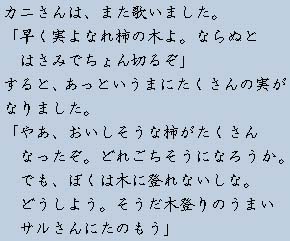 カニさんは、また歌いました。
「早く実よなれ柿の木よ。ならぬと
はさみでちょん切るぞ」
すると、あっというまにたくさんの実が
なりました。
「やあ、おいしそうな柿がたくさん
なったぞ。どれごちそうになろうか。
でも、ぼくは木に登れないしな。
どうしよう。そうだ木登りのうまい
サルさんにたのもう」